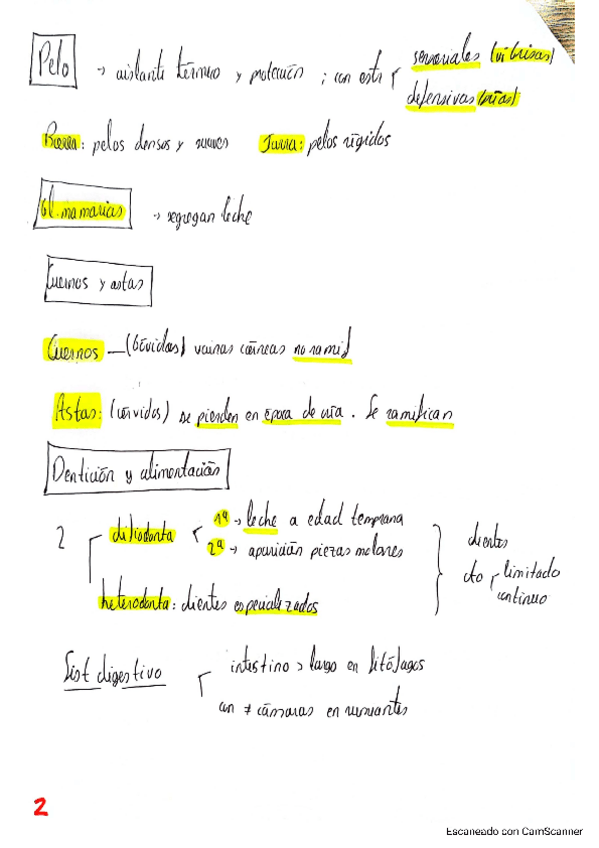 Pelo → aislante térmico y protección ; con estr sensoriales (vibrisas)
defensivas (púas)
Borra: pelos densos y suaves Jarra: pelos rígidos
Gl. mamarias → segregan leche
Cuernos y astas
Cuernos — (bóvidos) vainas córneas no ramif
Astas: (cérvidos) se pierden en época de cría. Se ramifican
Dentición y alimentación
2 difiodonta 1ª → leche a edad temprana
2ª → aparición piezas molares
heterodonta: dientes especializados
dientes
cto limitado
continuo
Sist digestivo intestino > largo en fitófagos
con ≠ cámaras en rumiantes
2
Escaneado con CamScanner